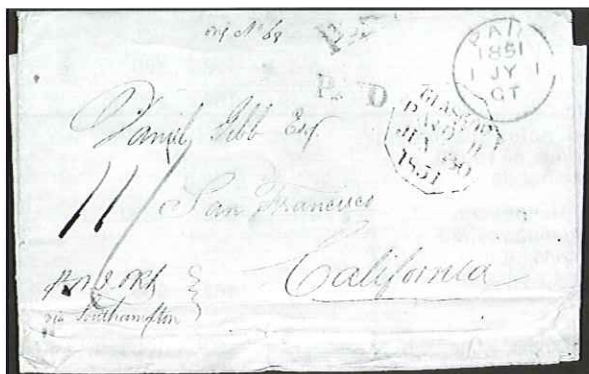 PAID
1851
1 JY 1
CT
PAID
GLASGOW
PAID
JUN 30
1851
Daniel Gibb Esq
San Francisco
California
via Southampton